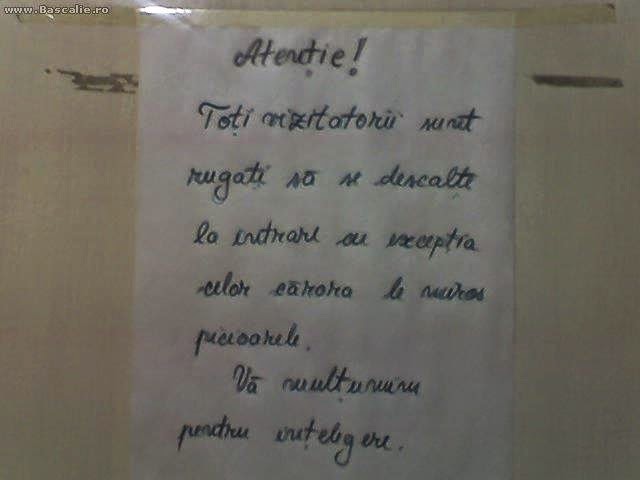 www.Bascalie.ro
Atenție!
Toți vizitatorii sunt
rugați să se descalțe
la intrare cu excepția
celor cărora le miros
picioarele.
Vă mulțumim
pentru ințelegere.